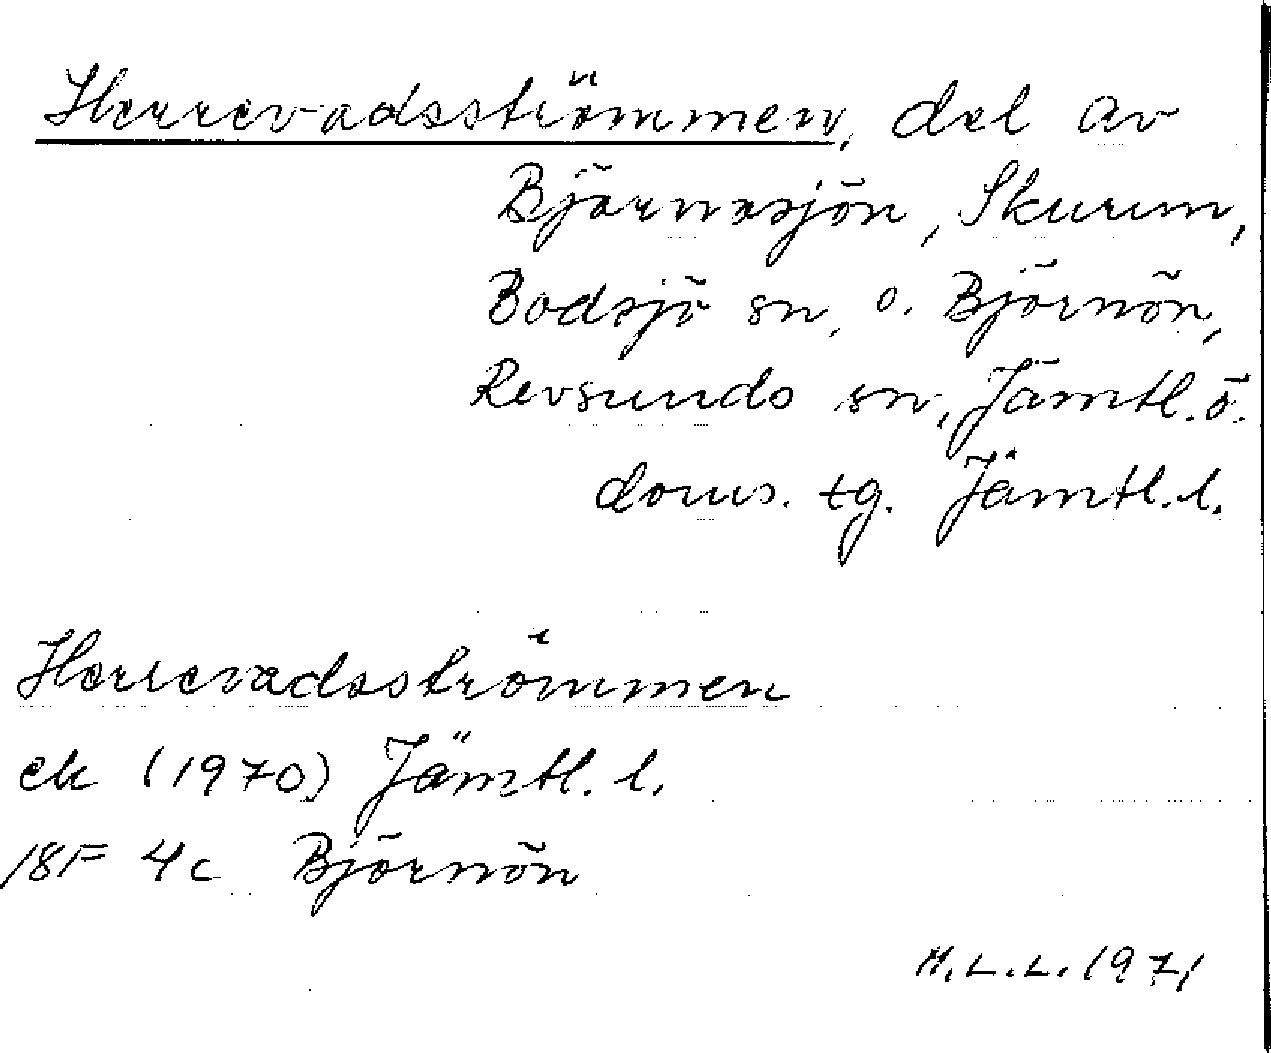 Herrevadsströmmen, del av
Björnasjön, Skurun,
Bodsjö sn, o. Björnön,
Revsunds sn, Jämtl. ö.
doms. tg. Jämtl. l.
Herrevadsströmmen
ek (1970) Jämtl. l.
18F 4c Björnön
M.L.L. 1971